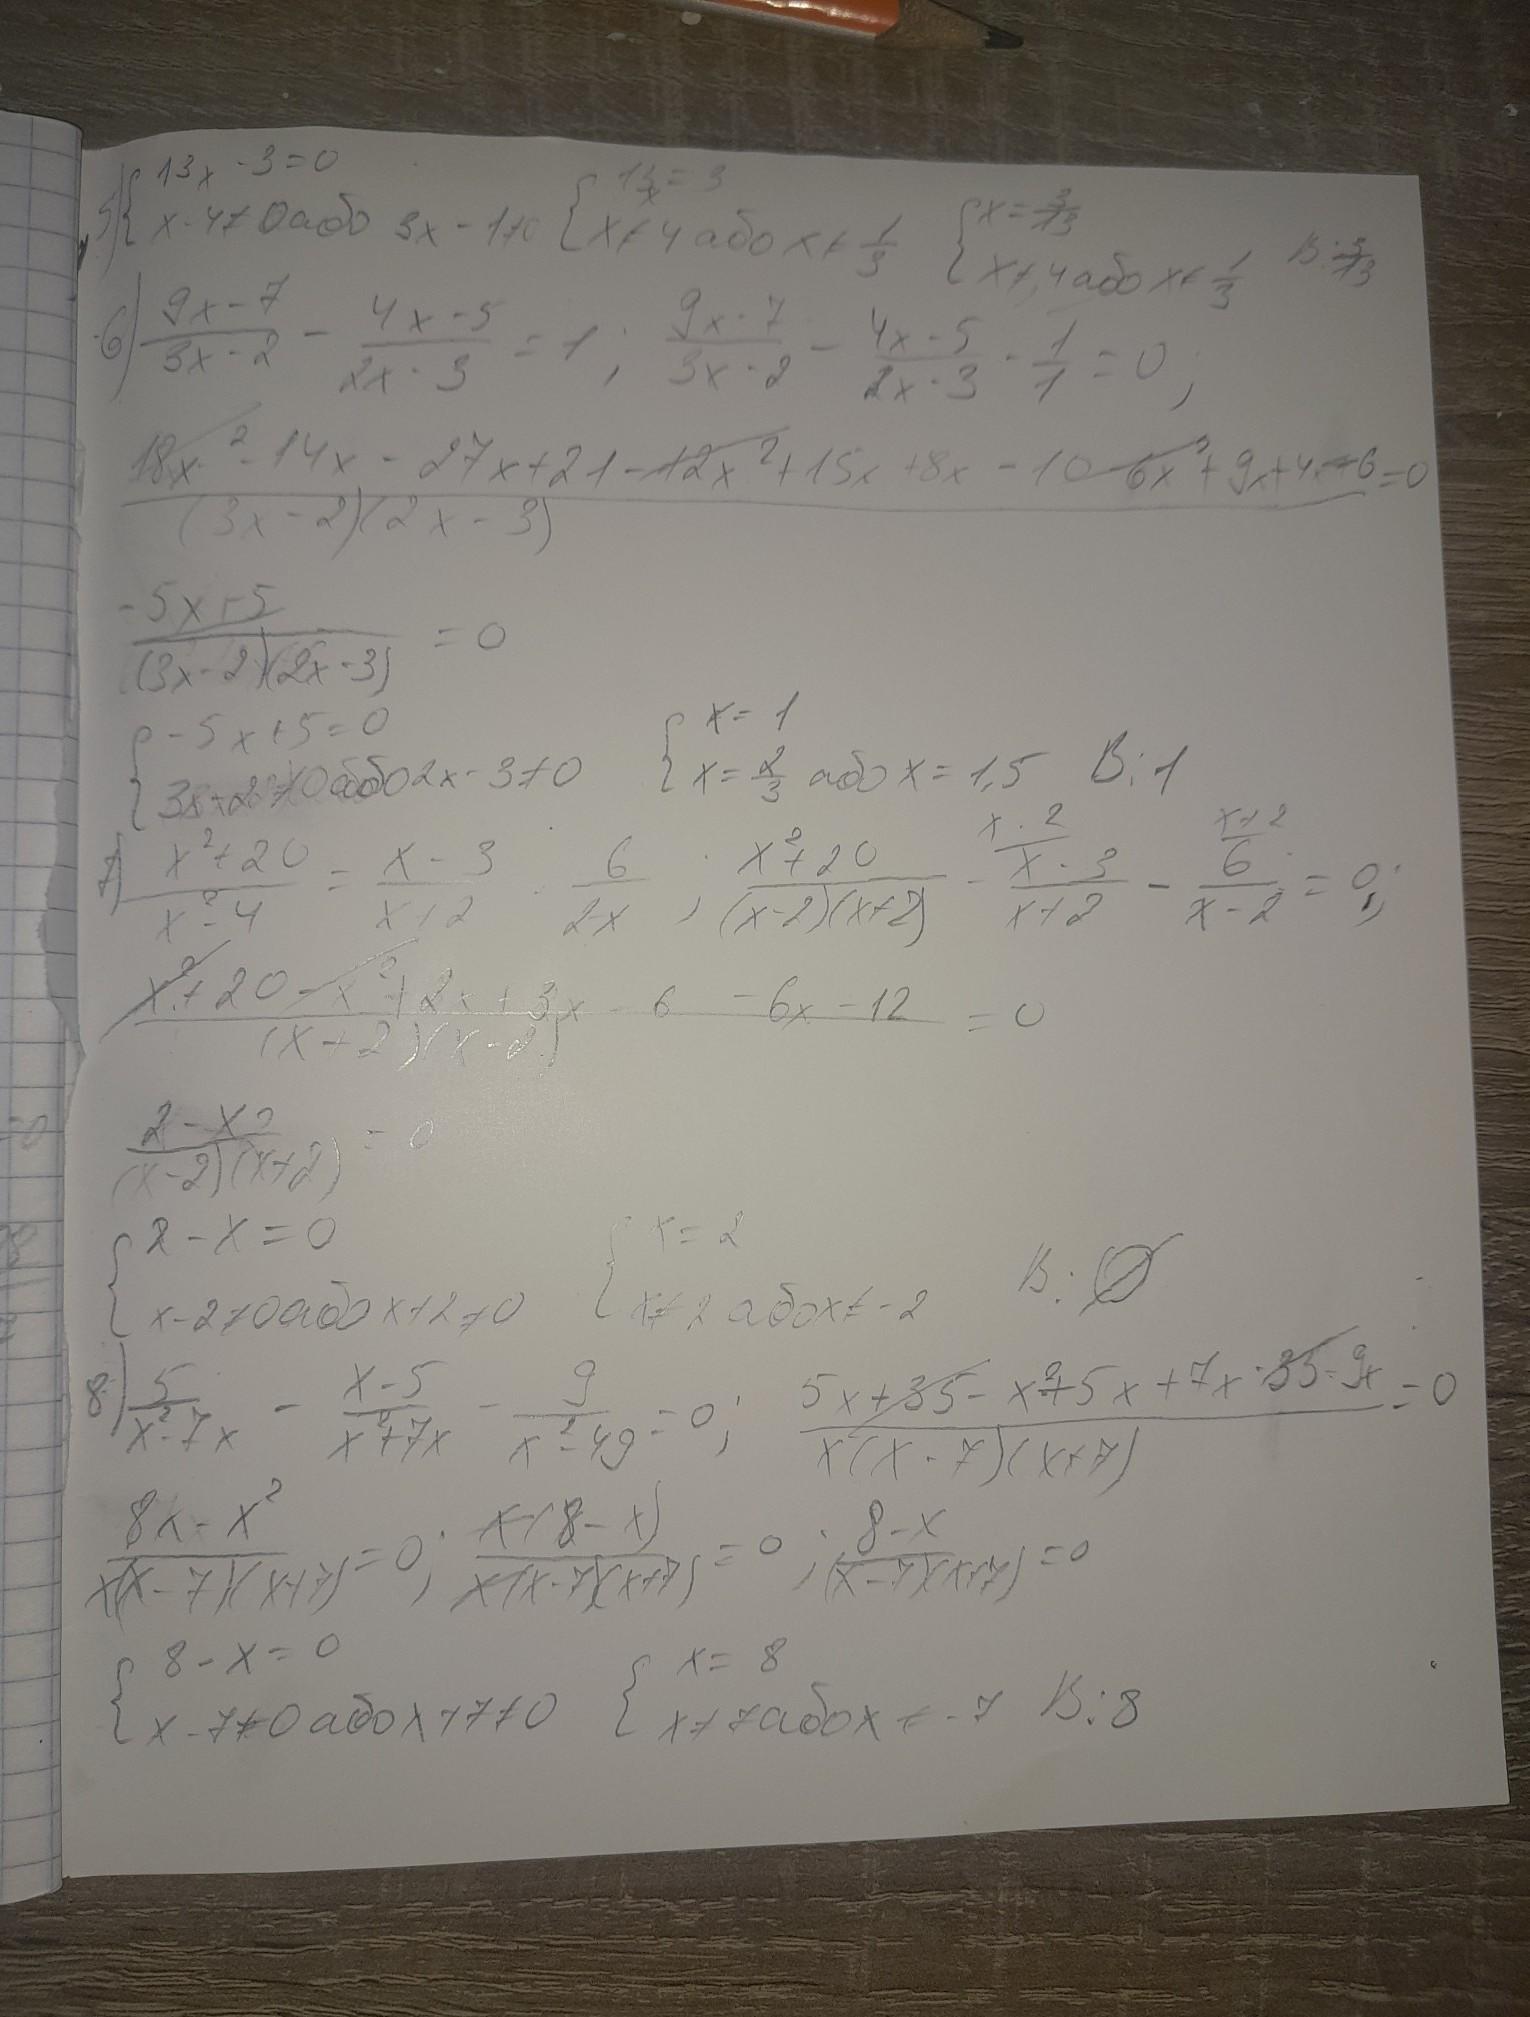 5) { 13x - 3 = 0 ; x - 4 ≠ 0 або 3x - 1 ≠ 0 { 13x = 3 ; x ≠ 4 або x ≠ 1/3 { x = 3/13 ; x ≠ 4 або x ≠ 1/3 В: 3/13
6) (9x - 7)/(3x - 2) - (4x - 5)/(2x - 3) = 1 ; (9x - 7)/(3x - 2) - (4x - 5)/(2x - 3) - 1/1 = 0 ;
(18x² - 14x - 27x + 21 - 12x² + 15x + 8x - 10 - 6x² + 9x + 4x - 6)/((3x - 2)(2x - 3)) = 0
(-5x + 5)/((3x - 2)(2x - 3)) = 0
{ -5x + 5 = 0 ; 3x - 2 ≠ 0 або 2x - 3 ≠ 0 { x = 1 ; x = 2/3 або x = 1,5 В: 1
7) (x² + 20)/(x² - 4) = (x - 3)/(x + 2) - 6/(2-x) ; (x² + 20)/((x - 2)(x + 2)) - (x - 2)/(x - 3)/(x + 2) - (x + 2)/6/(x - 2) = 0 ;
(x² + 20 - x² + 2x + 3x - 6 - 6x - 12)/((x + 2)(x - 2)) = 0
(2 - x)/((x - 2)(x + 2)) = 0
{ 2 - x = 0 ; x - 2 ≠ 0 або x + 2 ≠ 0 { x = 2 ; x ≠ 2 або x ≠ -2 В: ∅
8) 5/(x² - 7x) - (x - 5)/(x² + 7x) - 9/(x² - 49) = 0 ; (5x + 35 - x² + 5x + 7x - 35 - 9x)/(x(x - 7)(x + 7)) = 0
(8x - x²)/(x(x - 7)(x + 7)) = 0 ; x(8 - x)/(x(x - 7)(x + 7)) = 0 ; (8 - x)/((x - 7)(x + 7)) = 0
{ 8 - x = 0 ; x - 7 ≠ 0 або x + 7 ≠ 0 { x = 8 ; x ≠ 7 або x ≠ -7 В: 8